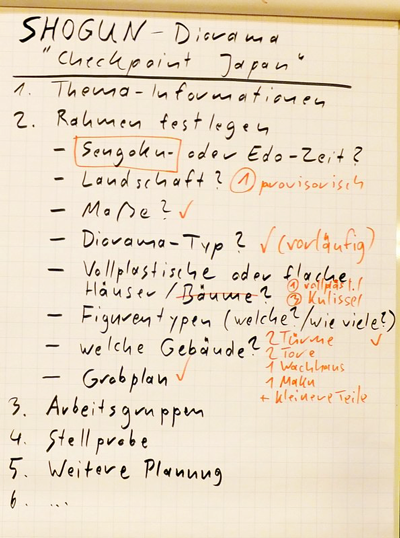 SHOGUN - Diorama
"Checkpoint Japan"
1. Thema-Informationen
2. Rahmen festlegen
- Sengoku- oder Edo-Zeit?
- Landschaft? ① provisorisch
- Maße? ✓
- Diorama-Typ? ✓ (vorläufig)
- Vollplastische oder flache
Häuser / Bäume? ① vollplast.!
② Kulisse!
- Figurentypen (welche?/wie viele?) ✓
- welche Gebäude? 2 Türme
2 Tore
1 Wachhaus
1 Maku
+ kleinere Teile
- Grobplan ✓
3. Arbeitsgruppen
4. Stellprobe
5. Weitere Planung
6. ...